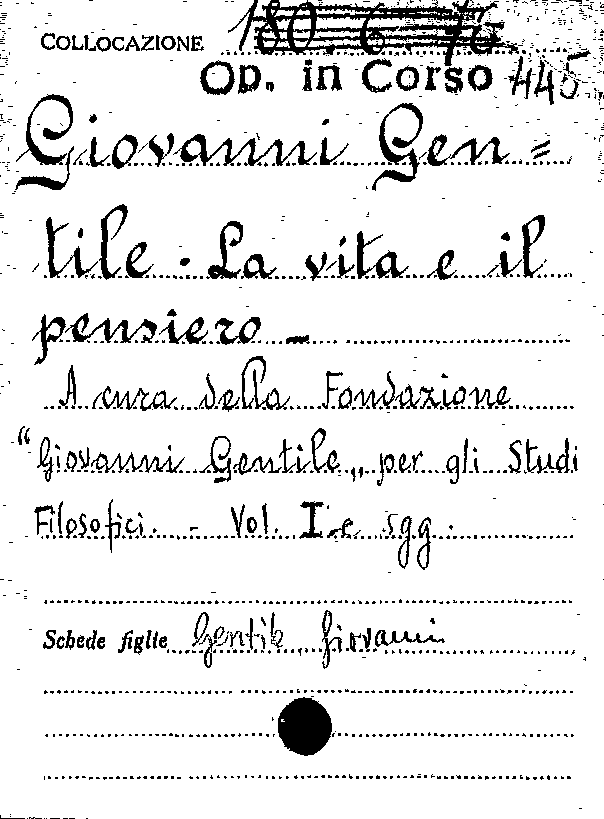 COLLOCAZIONE 180. 6. 76.
Op. in Corso 445
Giovanni Gen=
tile. La vita e il
pensiero -
A cura della Fondazione
“Giovanni Gentile„ per gli Studi
Filosofici. - Vol. I e sgg.
Schede figlie Gentile Giovanni